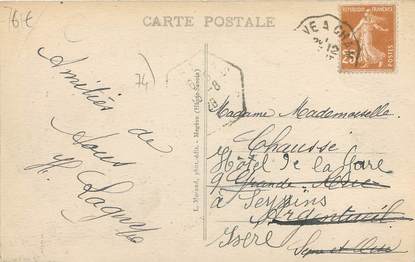 6€
CARTE POSTALE
74
Amitiés de
tous
REPUBLIQUE FRANÇAISE
25c
POSTES
L. Morand, phot.-édit. - Megève (Haute-Savoie)
Madame Mademoiselle
Chausse
Hôtel de la Gare
9 Grande Rue
à Seyssins
Argenteuil
Isère
Seine et Oise